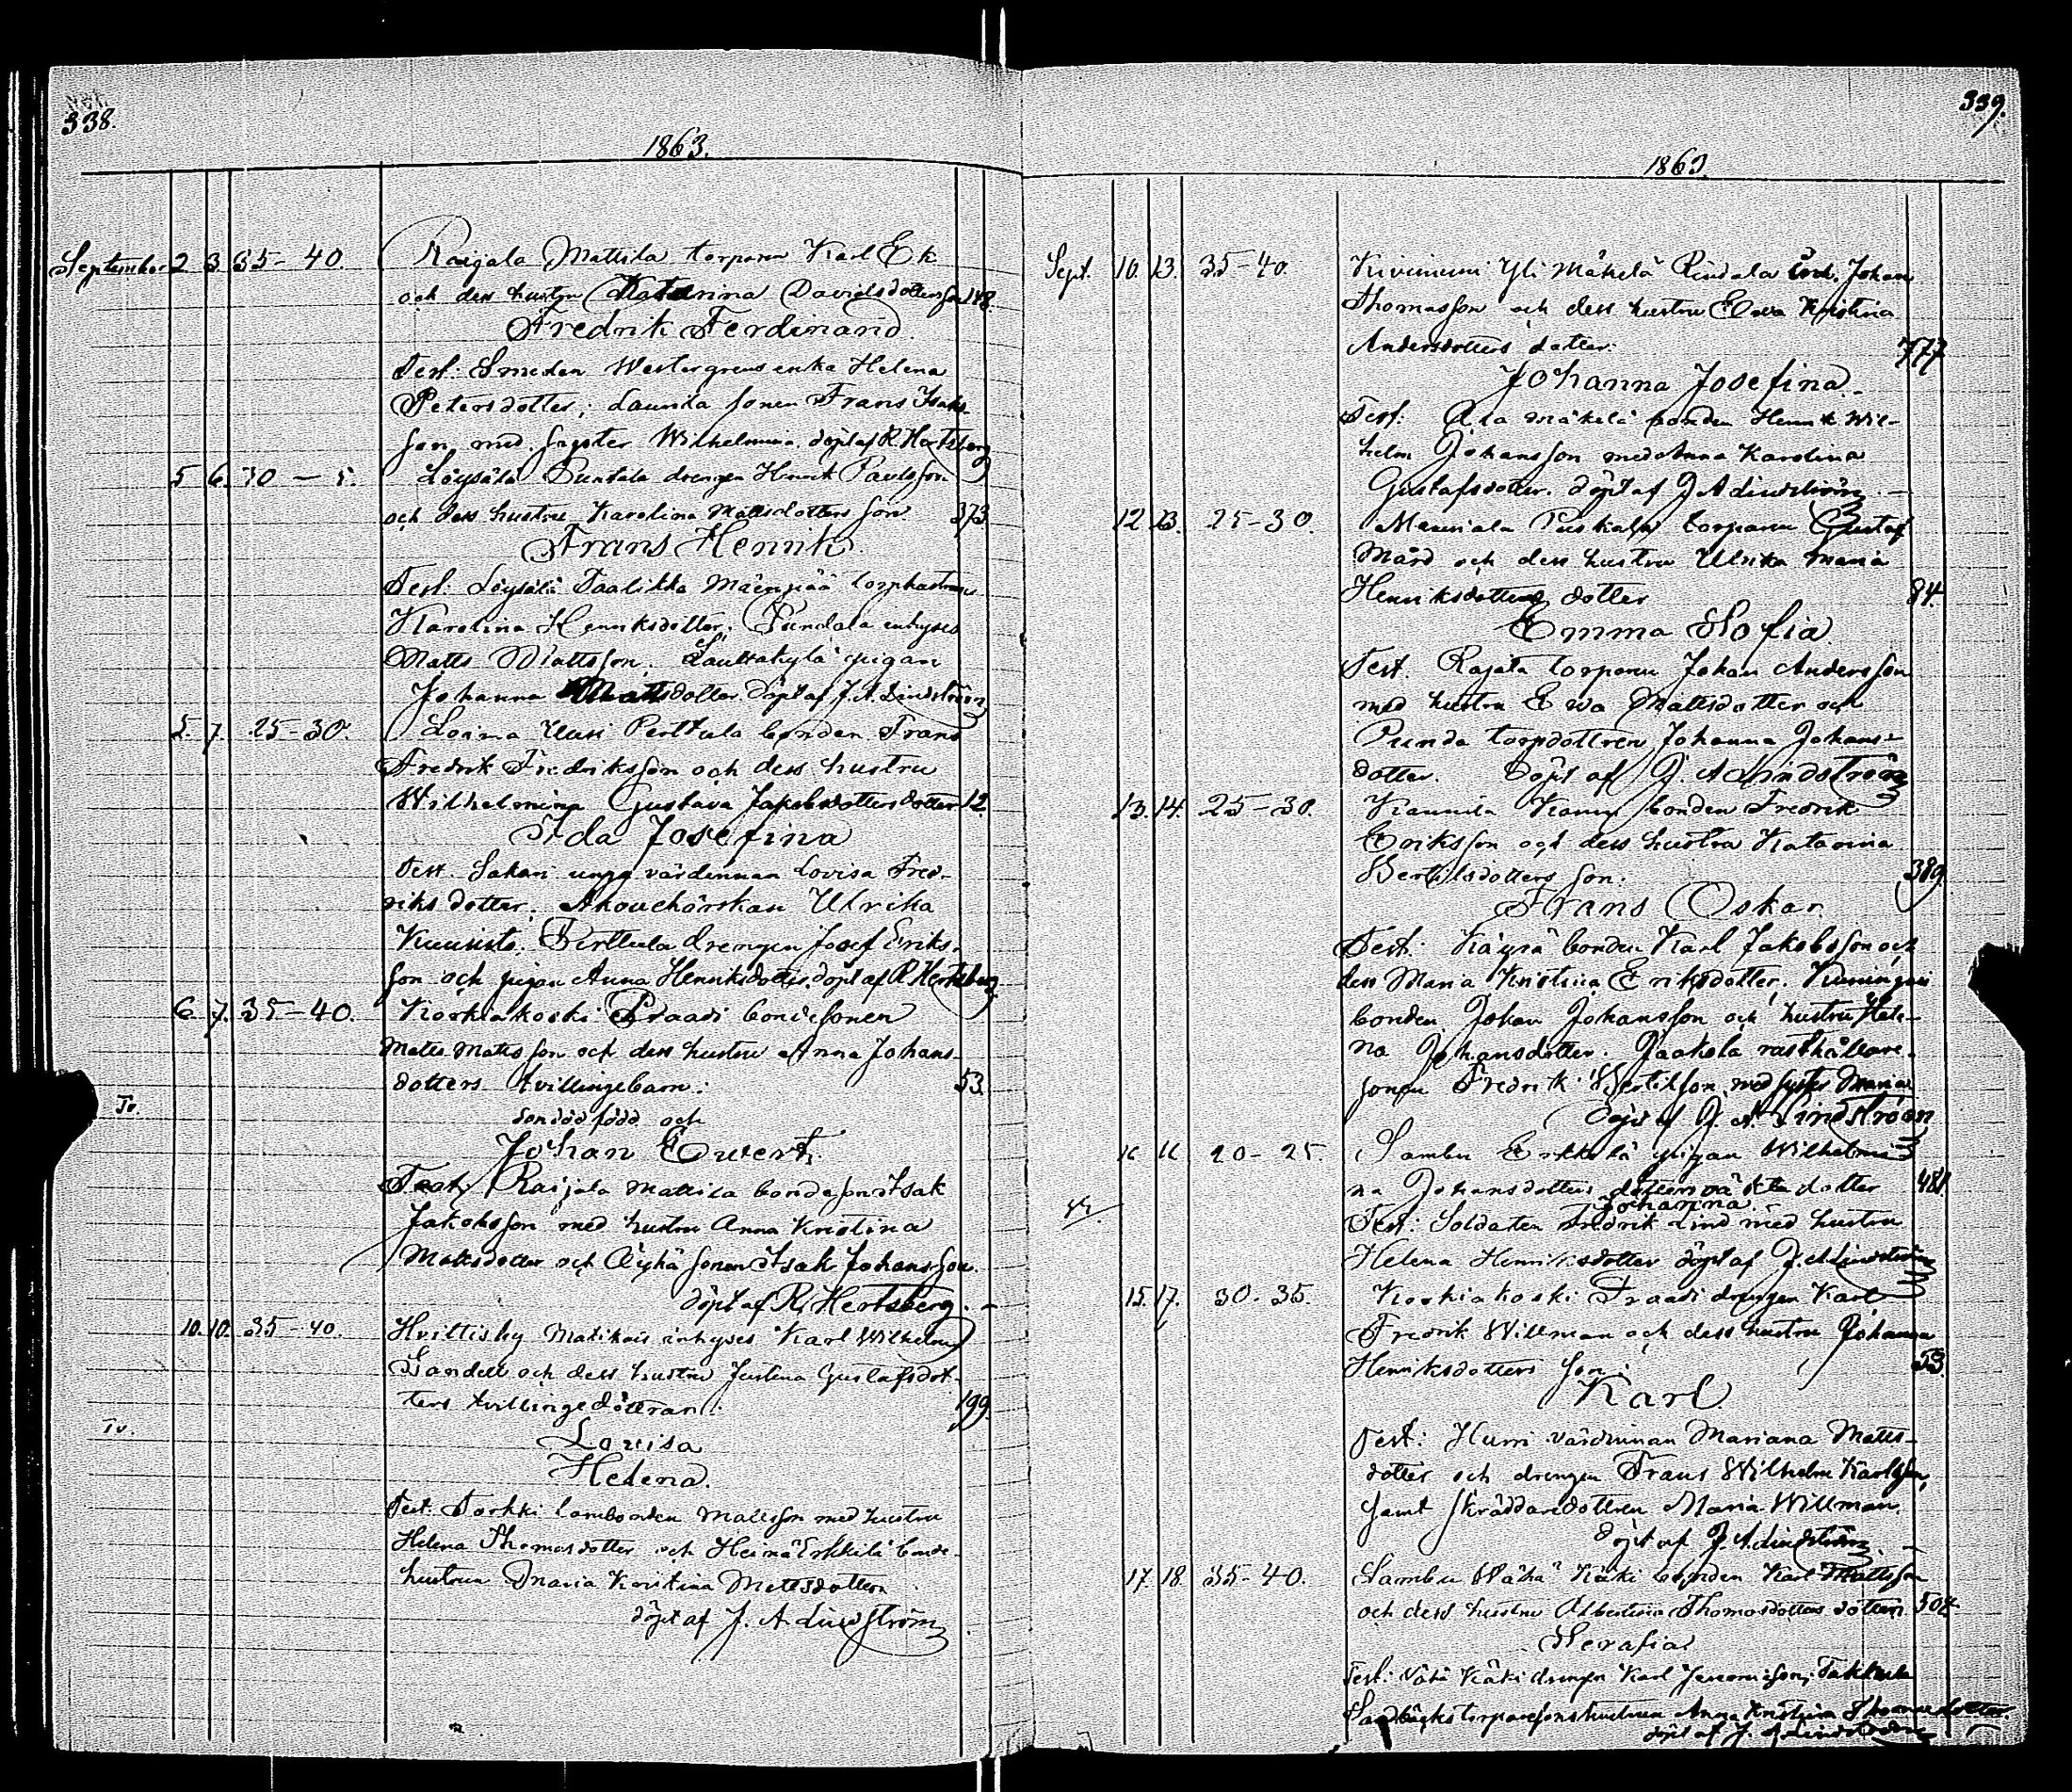 338.
1863.
September 2 3. 35-40. Raijala Mattila torparen Karl Ek
och dess hustru Katarina Davidsdotters son 148.
Fredrik Ferdinand.
Test: Smeden Westergrens enka Helena
Petersdotter; Launila sonen Frans Isaks-
son med syster Wilhelmina. döpt af R. Hertsberg
5 6. 30 — 5. Löysälä Puntala drengen Henrik Paulsson
och dess hustru Karolina Mattsdotters son. 373
Frans Henrik.
Test: Löysälä Paalikka Mäenpää torphustrun
Karolina Henriksdotter. Pundala inhyses
Matts Mattsson. Lauttakylä pigan
Johanna Mattsdotter. Döpt af J. A. Lindström
5. 7. 25-30. Loima Uusi Perttula bonden Frans
Fredrik Fredriksson och dess hustru
Wilhelmina Gustava Jakobsdotters dotter 12.
Ida Josefina
Test. Sakari unga värdinnan Lovisa Fred-
riks dotter. Ulrika
Kuusisto. Perttula drengen Josef Eriks-
son och pigan Anna Henriksdotter. döpt af R. Hertsberg.
6. 7. 35-40. Koskiakoski Praasi bondesonen
Matts Mattsson och dess hustru Anna Johans-
dotters tvillingebarn: 53
Tv. son död född och
Johan Ewert.
Test: Raijala Mattila bondeson Isak
Jakobsson med hustru Anna Kristina
Mattsdotter och Äyhä sonen Isak Johansson.
döpt af R. Hertsberg.
10. 10. 35-40. Hvittisby Matikais inhyses Karl Wilhelm
Sandell och dess hustru Justina Gustafsdot-
ters tvillingedöttrar: 199.
Tv.
Lovisa
Helena.
Test. Torkki lambonden Mattsson med hustru
Helena Thomasdotter och Heinä Erkkilä bonde-
hustrun Maria Kristina Mattsdotter
döpt af J. A. Lindström
339.
1863
Sept. 10. 13. 35-40. Kiviniemi Yli Mäkelä Rindala Johan
Thomasson och dess hustru Eva Kristina
Andersdotters dotter: 777
Johanna Josefina.
Test: Ala Mäkelä bonden Henrik Wil-
helm Johansson med Anna Karolina
Gustafsdotter. Döpt af J. A. Lindström.
12. 13. 25-30. Mauriala Puskala torparen Gustaf
Mård och dess hustru Ulrika Maria
Henriksdotters dotter 84.
Emma Sofia
Test. Rajala torparen Johan Andersson
med hustru Ewa Mattsdotter och
Punda torpdottren Johanna Johans-
dotter. Döpt af J. A. Lindström
13. 14. 25-30. Kaunila bonden Fredrik
Eriksson och dess hustru Katarina
Bertilsdotters son: 389.
Frans Oskar.
Test: Käyrä bonden Karl Jakobsson och
dess Maria Kristina Eriksdotter.
bonden Johan Johansson och hustru Hele-
na Johansdotter. Jaakola rusthållare-
sonen Fredrik Bertilsson med syster Maria
Döpt af J. A. Lindström
16 16 20-25. Sambu Erkkilä pigan Wilhelmi-
na Johansdotters oäkta dotter 481.
Johanna.
Test: Soldaten Fredrik Lind med hustru
Helena Henriksdotter döpt af J. A. Lindström
15. 17. 30-35. Koskiakoski Praasi drengen Karl
Fredrik Willman och dess hustru Johanna
Henriksdotters son: 53
Karl
Test: Hurri värdinnan Mariana Matts-
dotter och drengen Frans Wilhelm Karlsson,
samt skräddaredottren Maria Willman.
Döpt af J. A. Lindström.
17. 18 35-40. Sambu Wähä Käki bonden Karl Mattsson
och dess hustru Albertina Thomasdotters dotter 504.
Serafia
Test: Vähä Käki drengen Karl
torparesonshustrun Anna Kristina Thomasdotter.
döpt af J. A. Lindström